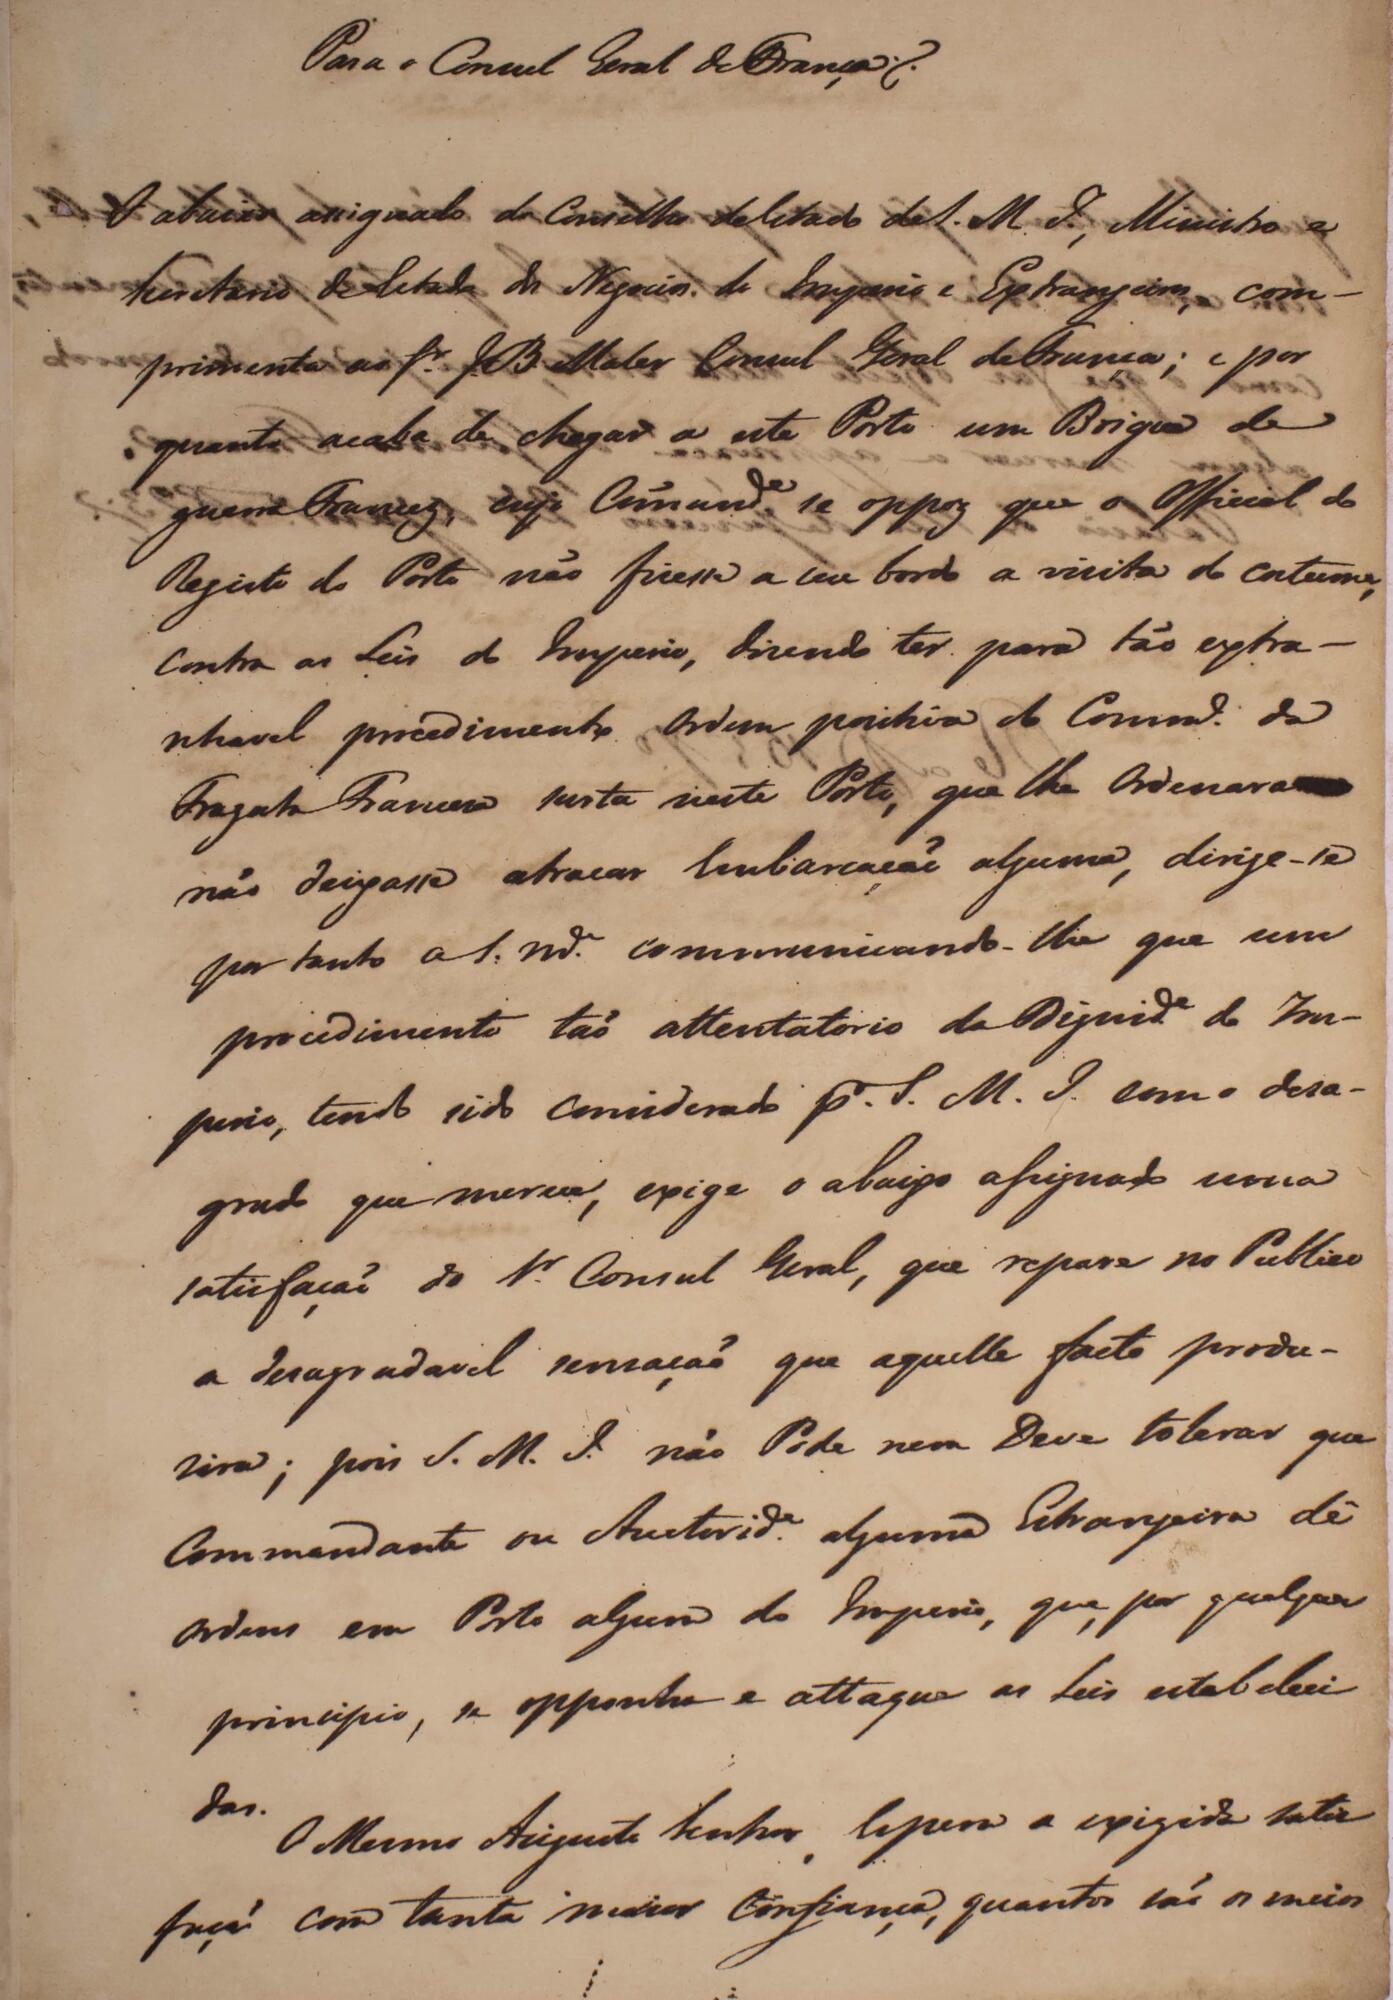 Para o Consul Geral de França.
O abaixo assignado do Conselho de Estado de S. M. I., Ministro e
Secretario de Estado dos Negocios do Imperio e Extrangeiros, com-
primenta ao Sr. J. B. Maler Consul Geral de França; e por
quanto acaba de chegar a este Porto um Brigue de
guerra Francez, cujo Cōmand.e se oppoz que o Official do
Registo do Porto não fizesse a seu bordo a visita do costume,
contra as Leis do Imperio, dizendo ter para tão extra-
nhavel procedimento ordem positiva do Comm.de da
Fragata Franceza surta neste Porto, que lhe ordenara
não deixasse atracar Embarcação alguma, dirige-se
por tanto a S. M.ce communicando-lhe que um
procedimento tão attentatorio da Dignid.e do Im-
perio, tendo sido considerado pr. S. M. I. com o desa-
grado que merece, exige o abaixo assignado uma
satisfação do Sr. Consul Geral, que repare no Publico
a desagradavel sensação que aquelle facto produ-
zira; pois S. M. I. não Pode nem Deve tolerar que
Commandante ou Auctorid.e alguma Estrangeira dê
ordens em Porto algum do Imperio, que, por qualquer
principio, se opponha e attaque as Leis estabeleci
das.
O Mesmo Augusto Senhor Espera a exigida satis
fação com tanta maior confiança, quantos são os meios